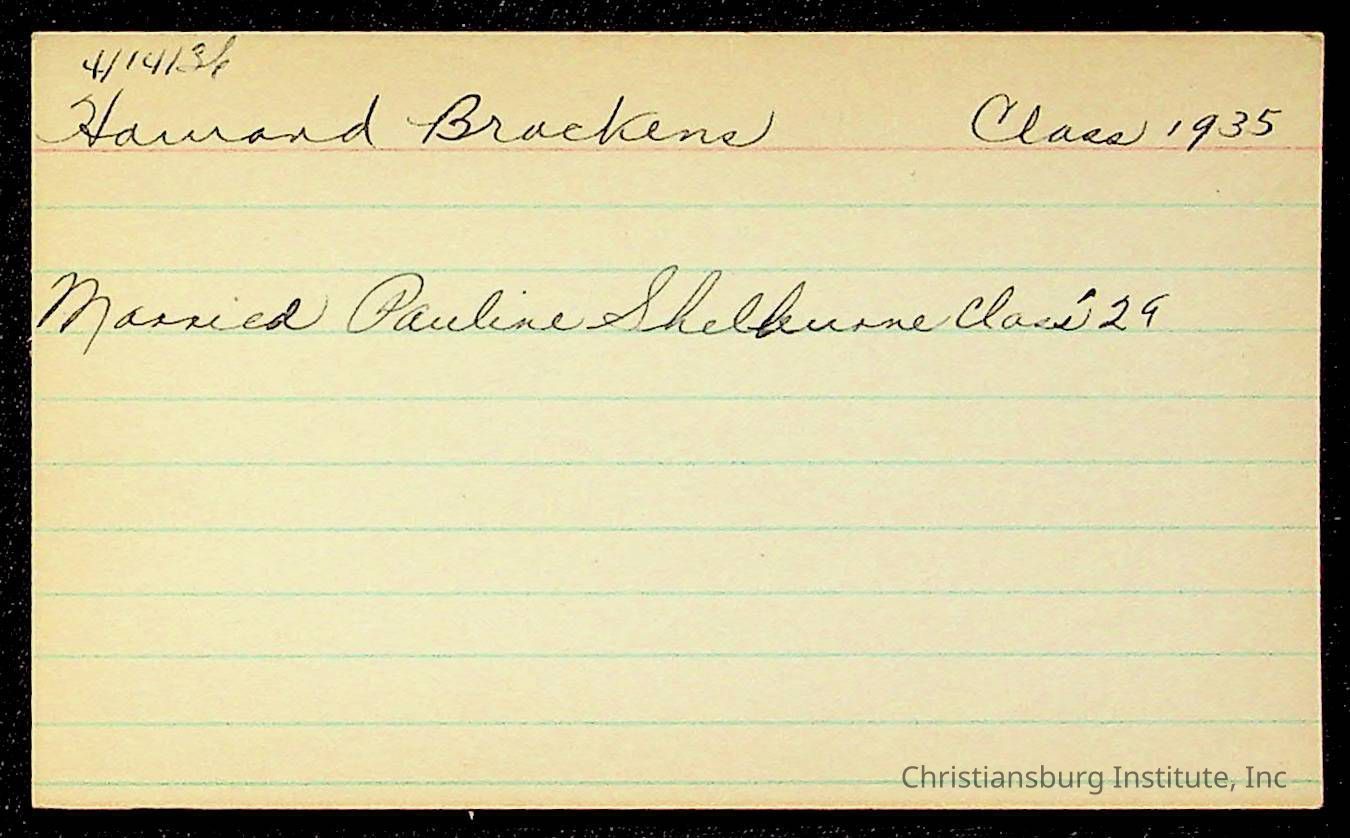 4/14/36
Howard Brockens Class 1935
Married Pauline Shelburne Class '29
Christiansburg Institute, Inc